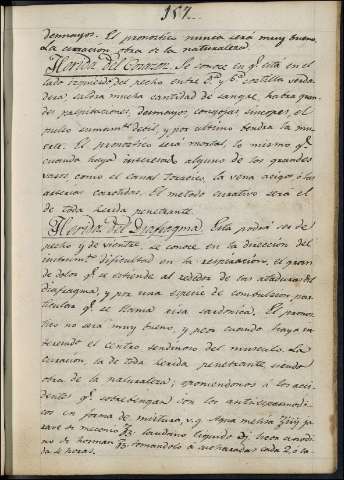 157.
desmayos. El pronostico nunca será muy bueno.
La curación obra de la naturaleza.
Herida del Corazon. Se conoce en q.e está en el
lado izquierdo del pecho entre 5.a y 6.a costilla verda
dera, saldra mucha cantidad de sangre, habra gran
des palpitaciones, desmayos, congojas sincopes, el
pulso sumam.te debil, y por ultimo tendra la mu
erte. El pronostico será mortal, lo mismo q.e
cuando haya interesado alguno de los grandes
vasos como el canal toracico, la vena acigos ó las
arterias carotidas. El metodo curativo será el
de toda herida penetrante.
Herida del Diafragma. Esta podrá ser de
pecho y de vientre, se conoce en la direccion del
instrum.to dificultad en la respiracion, el gran
de dolor q.e se estiende al rededor de las ataduras del
diafragma, y por una especie de convulsion par
ticular q.e se llama risa sardonica. El pronos
tico no será muy bueno, y peor cuando haya in
teresado el centro tendinoso del musculo. La
curacion, la de toda herida penetrante siendo
obra de la naturaleza; oponiendonos á los acci
dentes q.e sobrebengan con los antiespasmodi
cos en forma de mistura, v.g. Agua melisa
rave de meconio laudano liquido licor anodi
no de hofman tomandolo á cucharadas cada 2 ó
da de horas.